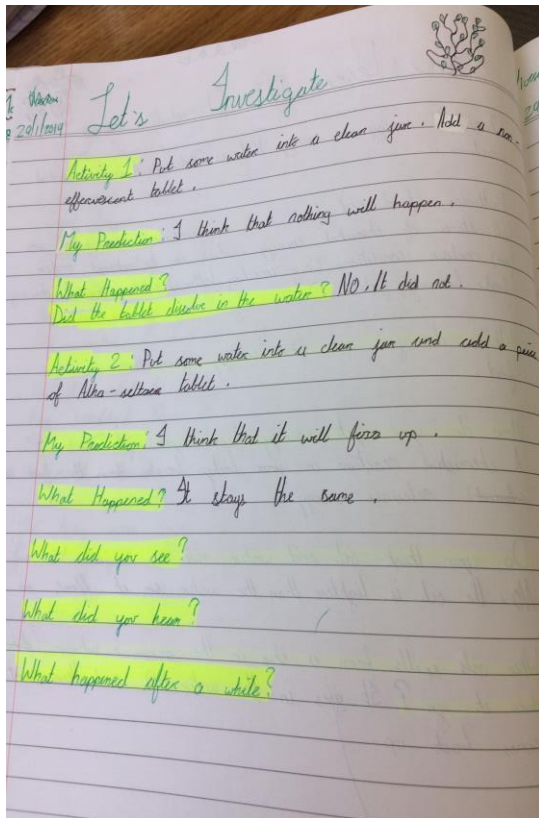 29/1/2019 Let's Investigate
Activity 1: Put some water into a clean jar. Add a non-
effervescent tablet.
My Prediction: I think that nothing will happen.
What Happened?
Did the tablet disolve in the water? NO, It did not.
Activity 2: Put some water into a clean jar and add a piece
of Alka-seltzer tablet.
My Prediction: I think that it will fizz up.
What Happened? It stays the same.
What did you see?
What did you hear?
What happened after a while?